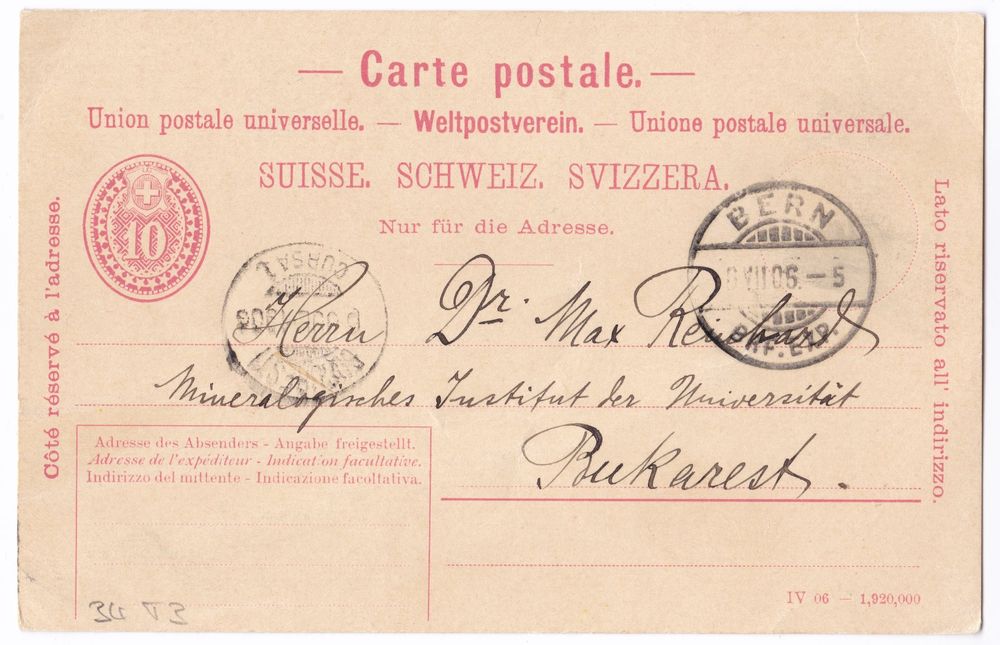 — Carte postale. —
Union postale universelle. — Weltpostverein. — Unione postale universale.
SUISSE. SCHWEIZ. SVIZZERA.
Nur für die Adresse.
10
Côté réservé à l'adresse.
Lato riservato all' indirizzo.
BERN
VII 06. – 5
BRF. EXP.
CURSA I
Herrn Dr. Max Reinhard
Mineralogisches Institut der Universität
Bukarest.
Adresse des Absenders - Angabe freigestellt.
Adresse de l'expéditeur - Indication facultative.
Indirizzo del mittente - Indicazione facoltativa.
IV 06 — 1,920,000